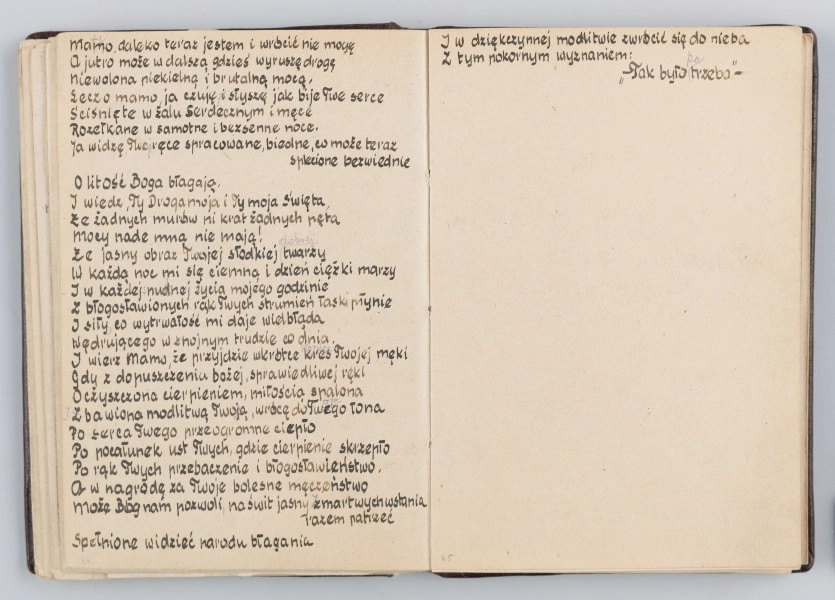 Mamo, daleko teraz jestem i wrócić nie mogę
A jutro może w dalszą gdzieś wyruszę drogę
Niewolona piekielną i brutalną mocą.
Lecz o mamo, ja czuję i słyszę jak bije Twe serce
Ściśnięte w żalu serdecznym i męce
Rozełkane w samotne i bezsenne noce.
Ja widzę Twoje ręce spracowane, biedne, co może teraz
splecione bezwiednie
O litość Boga błagają.
I wiedz, Ty Droga moja i Ty moja Święta,
Że żadnych murów ni krat żadnych pęta
Mocy nade mną nie mają!
Że jasny obraz Twojej słodkiej twarzy
W każdą noc mi się ciemną i dzień ciężki marzy
I w każdej nudnej życia mojego godzinie
Z błogosławionych rąk Twych strumień łaski płynie
I siły, co wytrwałość mi daje wielbłąda
Wędrującego w znojnym trudzie co dnia.
I wierz Mamo, że przyjdzie wkrótce kres Twojej męki
Gdy z dopuszczenia bożej, sprawiedliwej ręki
Oczyszczona cierpieniem, miłością spalona
Zbawiona modlitwą Twoją, wrócę do Twego łona
Po serca Twego przeogromne ciepło
Po pocałunek ust Twych, gdzie cierpienie skrzepło
Po rąk Twych przebaczenie i błogosławieństwo.
A w nagrodę za Twoje bolesne męczeństwo
Może Bóg nam pozwoli, na świt jasny Zmartwychwstania
razem patrzeć
Spełnione widzieć narodu błagania
I w dziękczynnej modlitwie zwrócić się do nieba
Z tym pokornym wyznaniem:
„Tak było trzeba"-